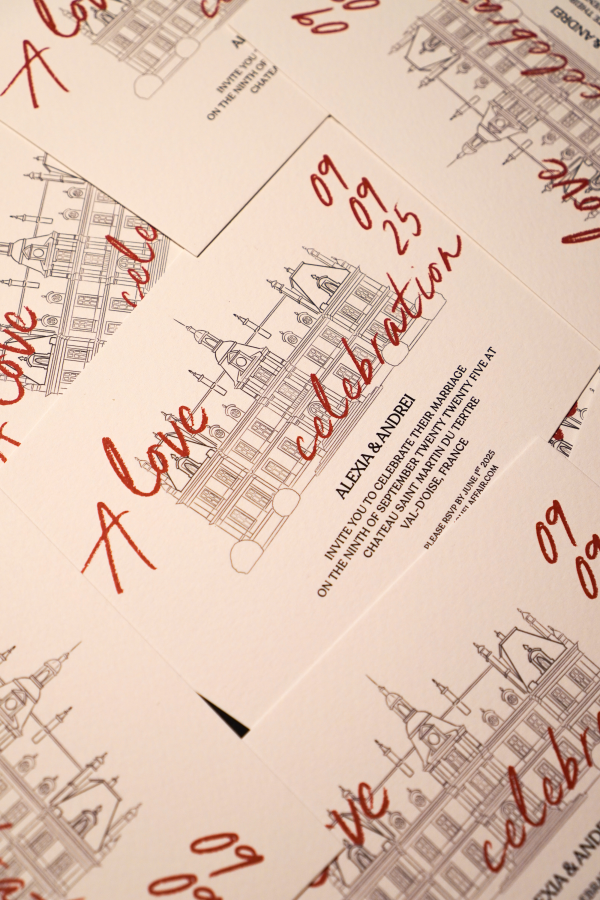 A love
09
09
25
celebration
ALEXIA & ANDREI
INVITE YOU TO CELEBRATE THEIR MARRIAGE
ON THE NINTH OF SEPTEMBER TWENTY TWENTY FIVE AT
CHATEAU SAINT MARTIN DU TERTRE
VAL-D'OISE, FRANCE
PLEASE RSVP BY JUNE 1ST 2025
AFFAIR.COM
A lov
INVITE YOU
ON THE NINTH OF
CHATEA
09
09
celebra
& ANDREI
love
cele
love
09
09
celebr
EXIA & AND
09
09